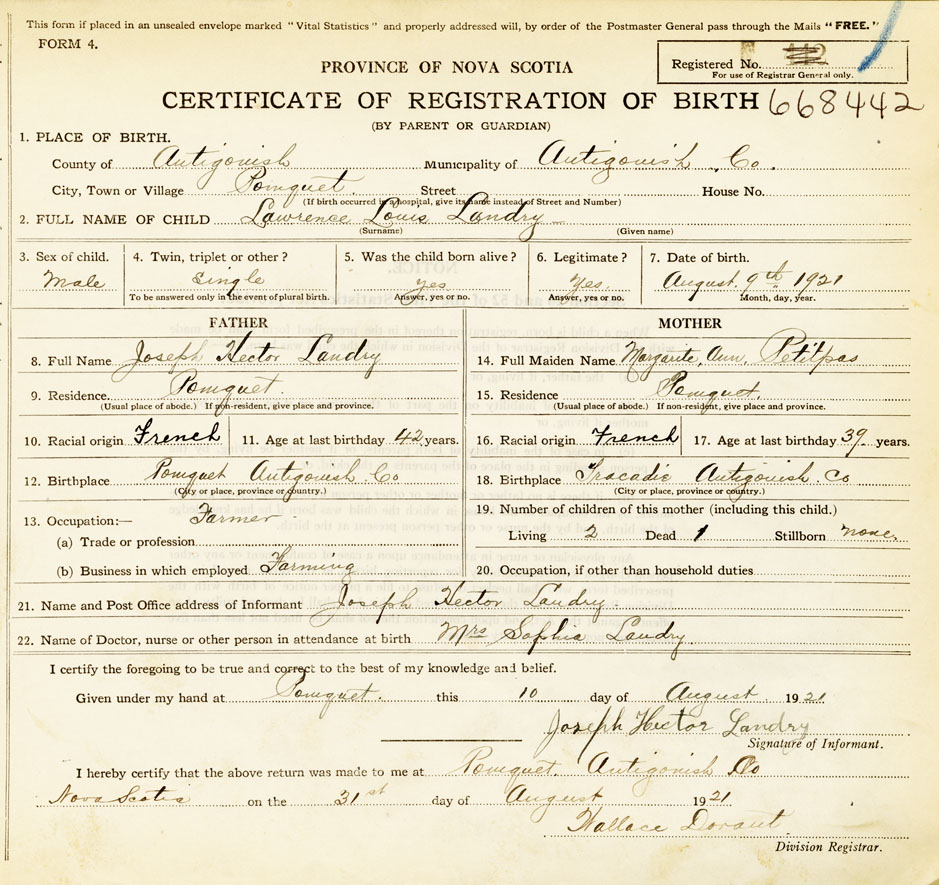 This form if placed in an unsealed envelope marked "Vital Statistics" and properly addressed will, by order of the Postmaster General pass through the Mails "FREE."
FORM 4.
Registered No. 442
For use of Registrar General only.
PROVINCE OF NOVA SCOTIA
CERTIFICATE OF REGISTRATION OF BIRTH 668442
(BY PARENT OR GUARDIAN)
1. PLACE OF BIRTH.
County of Antigonish Municipality of Antigonish Co.
City, Town or Village Pomquet. Street House No.
(If birth occurred in a hospital, give its name instead of Street and Number)
2. FULL NAME OF CHILD Lawrence Louis Landry
(Surname) (Given name)
3. Sex of child. 4. Twin, triplet or other? 5. Was the child born alive? 6. Legitimate? 7. Date of birth.
Male Single yes Yes. August. 9th 1921
To be answered only in the event of plural birth. Answer, yes or no. Answer, yes or no. Month, day, year.
FATHER MOTHER
8. Full Name Joseph Hector Landry 14. Full Maiden Name Margarite, Ann, Petitpas
9. Residence. Pomquet 15. Residence Pomquet.
(Usual place of abode.) If non-resident, give place and province. (Usual place of abode.) If non-resident, give place and province.
10. Racial origin French 11. Age at last birthday 42 years. 16. Racial origin French 17. Age at last birthday 39. years.
12. Birthplace Pomquet Antigonish Co 18. Birthplace Tracadie Antigonish. Co
(City or place, province or country.) (City or place, province or country.)
13. Occupation:— Farmer 19. Number of children of this mother (including this child.)
(a) Trade or profession Living 2 Dead 1 Stillborn none.
(b) Business in which employed Farming 20. Occupation, if other than household duties
21. Name and Post Office address of Informant Joseph Hector Landry
22. Name of Doctor, nurse or other person in attendance at birth Mrs Sophia Landry
I certify the foregoing to be true and correct to the best of my knowledge and belief.
Given under my hand at Pomquet. this 10 day of August 1921
Joseph Hector Landry
Signature of Informant.
I hereby certify that the above return was made to me at Pomquet. Antigonish Co
Nova Scotia on the 31st day of August 1921
Wallace Dorant
Division Registrar.